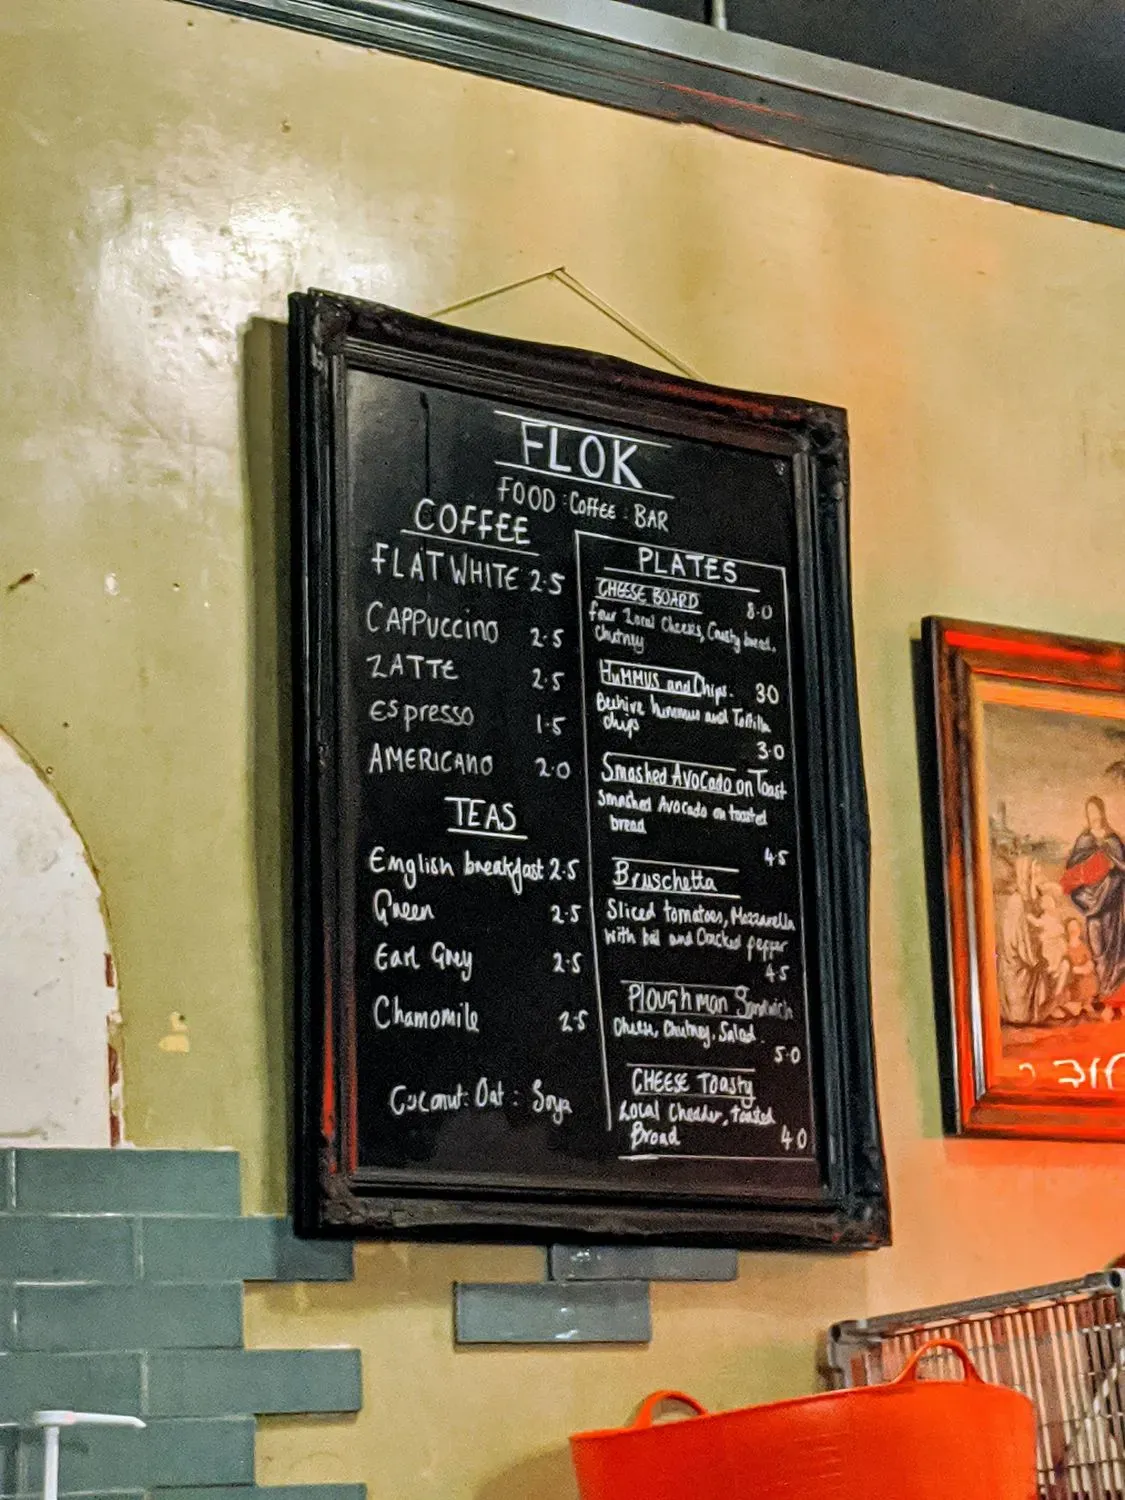 FLOK
FOOD : COFFEE : BAR
COFFEE
FLAT WHITE 2.5
CAPPUCCINO 2.5
LATTE 2.5
ESPRESSO 1.5
AMERICANO 2.0
TEAS
English breakfast 2.5
Green 2.5
Earl Grey 2.5
Chamomile 2.5
Coconut : Oat : Soya
PLATES
CHEESE BOARD 8.0
Four Local Cheeses, Crusty bread,
Chutney
HUMMUS and Chips. 30
Beehive hummus and Tortilla
chips
3.0
Smashed Avocado on Toast
Smashed Avocado on toasted
bread
4.5
Bruschetta
Sliced tomatoes, Mozzarella
with and Cracked pepper
4.5
Ploughman Sandwich
Cheese, Chutney, Salad.
5.0
CHEESE TOASTY
Local Cheddar, toasted
Bread 4.0